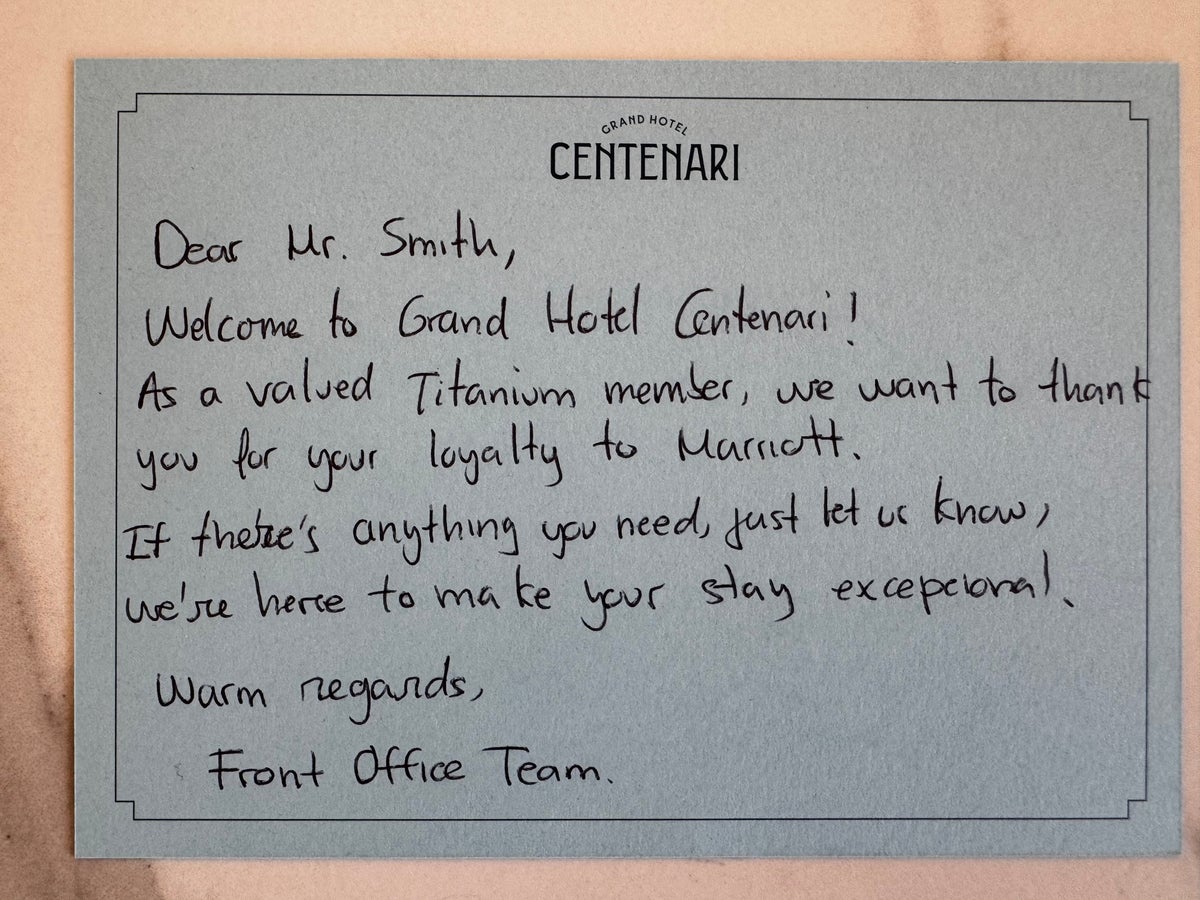 GRAND HOTEL
CENTENARI
Dear Mr. Smith,
Welcome to Grand Hotel Centenari!
As a valued Titanium member, we want to thank
you for your loyalty to Marriott.
If there's anything you need, just let us know,
we're here to make your stay excepcional.
Warm regards,
Front Office Team.